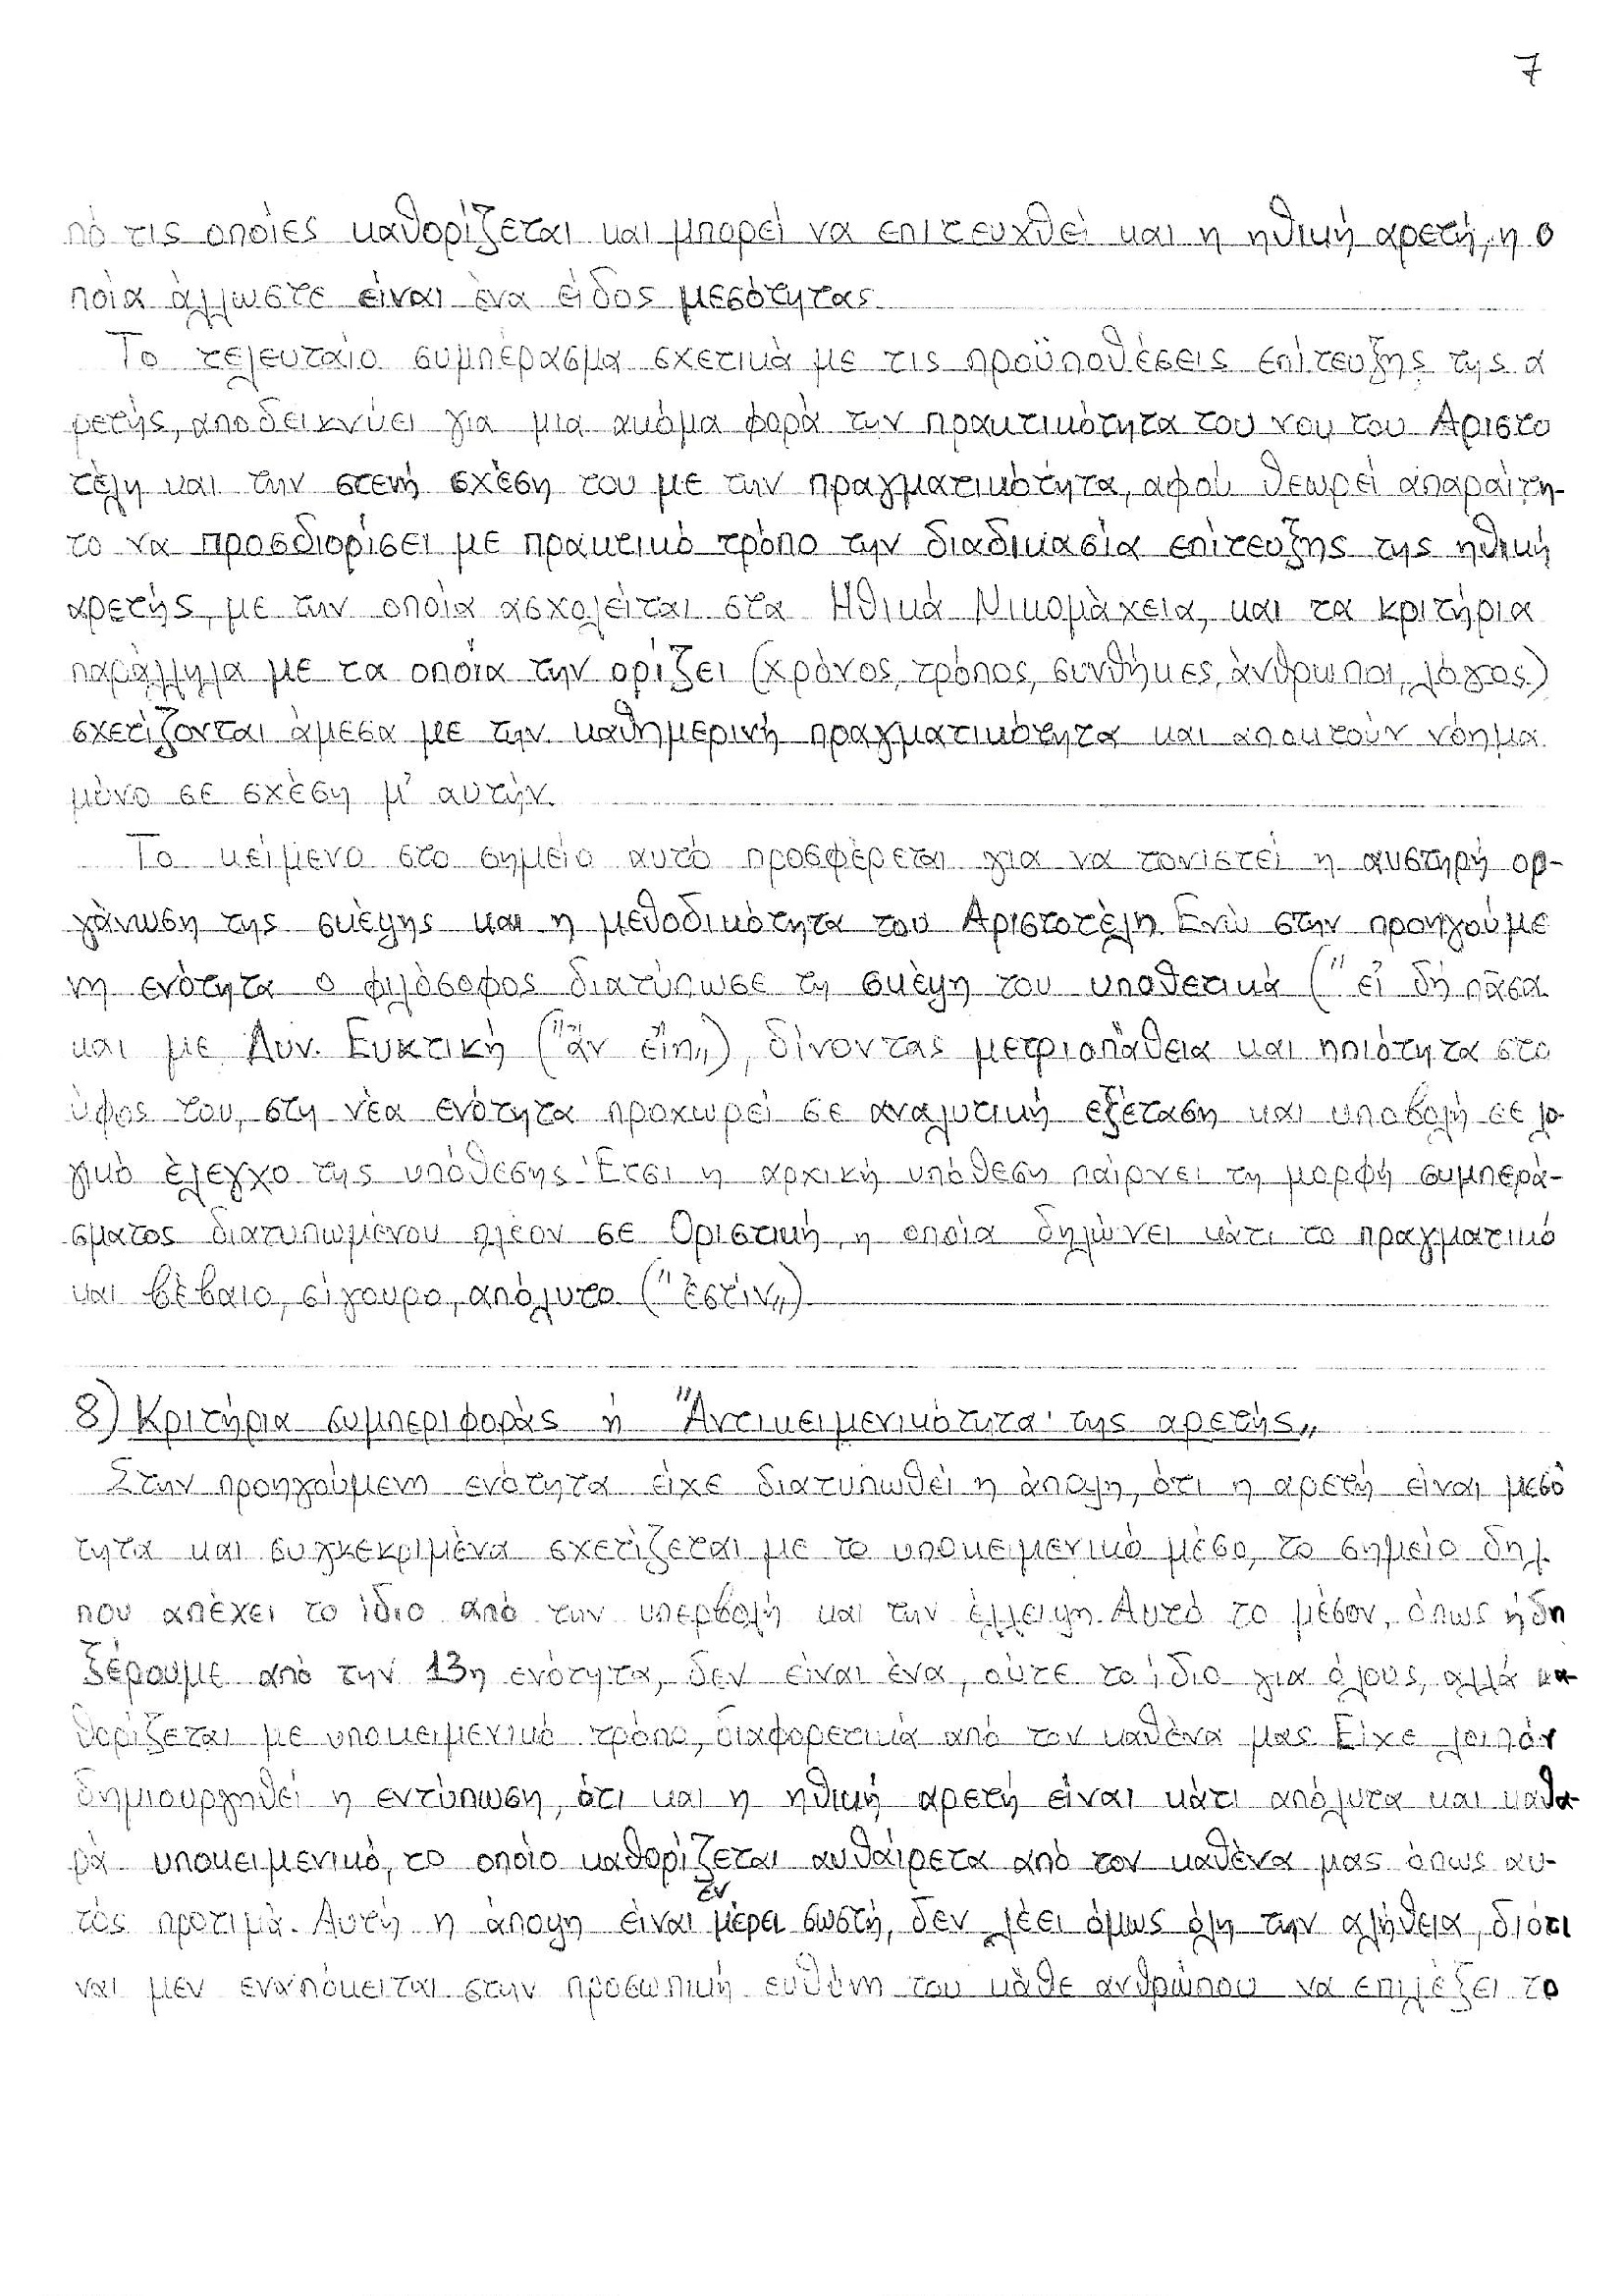 7
πό τις οποίες καθορίζεται και μπορεί να επιτευχθεί και η ηθική αρετή, η ο
ποία άλλωστε είναι ένα είδος μεσότητας.
Το τελευταίο συμπέρασμα σχετικά με τις προϋποθέσεις επίτευξης της α
ρετής, αποδεικνύει για μια ακόμα φορά την πρακτικότητα του νου του Αριστο
τέλη και την στενή σχέση του με την πραγματικότητα, αφού θεωρεί απαραίτη-
το να προσδιορίσει με πρακτικό τρόπο την διαδικασία επίτευξης της ηθική
αρετής, με την οποία ασχολείται στα Ηθικά Νικομάχεια, και τα κριτήρια
παράλληλα με τα οποία την ορίζει (χρόνος, τρόπος, συνθήκες, άνθρωποι, λόγος)
σχετίζονται άμεσα με την καθημερινή πραγματικότητα και αποκτούν νόημα
μόνο σε σχέση μ' αυτήν.
Το κείμενο στο σημείο αυτό προσφέρεται για να τονιστεί η αυστηρή ορ-
γάνωση της σκέψης και η μεθοδικότητα του Αριστοτέλη. Ενώ στην προηγούμε
νη ενότητα ο φιλόσοφος διατύπωσε τη σκέψη του υποθετικά ("εἰ δή πᾶσα
και με Δυν. Ευκτική ("ἂν εἴη„), δίνοντας μετριοπάθεια και ηπιότητα στο
ύφος του, στη νέα ενότητα προχωρεί σε αναλυτική εξέταση και υποβολή σε λο-
γικό έλεγχο της υπόθεσης. Έτσι η αρχική υπόθεση παίρνει τη μορφή συμπερά-
σματος διατυπωμένου πλέον σε Οριστική, η οποία δηλώνει κάτι το πραγματικό
και βέβαιο, σίγουρο, απόλυτο ("ἐστίν„)
8) Κριτήρια συμπεριφοράς ή "Αντικειμενικότητα της αρετής„
Στην προηγούμενη ενότητα είχε διατυπωθεί η άποψη, ότι η αρετή είναι μεσό
τητα και συγκεκριμένα σχετίζεται με το υποκειμενικό μέσο, το σημείο δηλ.
που απέχει το ίδιο από την υπερβολή και την έλλειψη. Αυτό το μέσον, όπως ήδη
ξέρουμε από την 13η ενότητα, δεν είναι ένα, ούτε το ίδιο για όλους, αλλά κα-
θορίζεται με υποκειμενικό τρόπο, διαφορετικά από τον καθένα μας. Είχε λοιπόν
δημιουργηθεί η εντύπωση, ότι και η ηθική αρετή είναι κάτι απόλυτα και καθα-
ρά υποκειμενικό, το οποίο καθορίζεται αυθαίρετα από τον καθένα μας όπως αυ-
τός προτιμά. Αυτή η άποψη είναι εν μέρει σωστή, δεν λέει όμως όλη την αλήθεια, διότι
ναι μεν εναπόκειται στην προσωπική ευθύνη του κάθε ανθρώπου να επιλέξει το